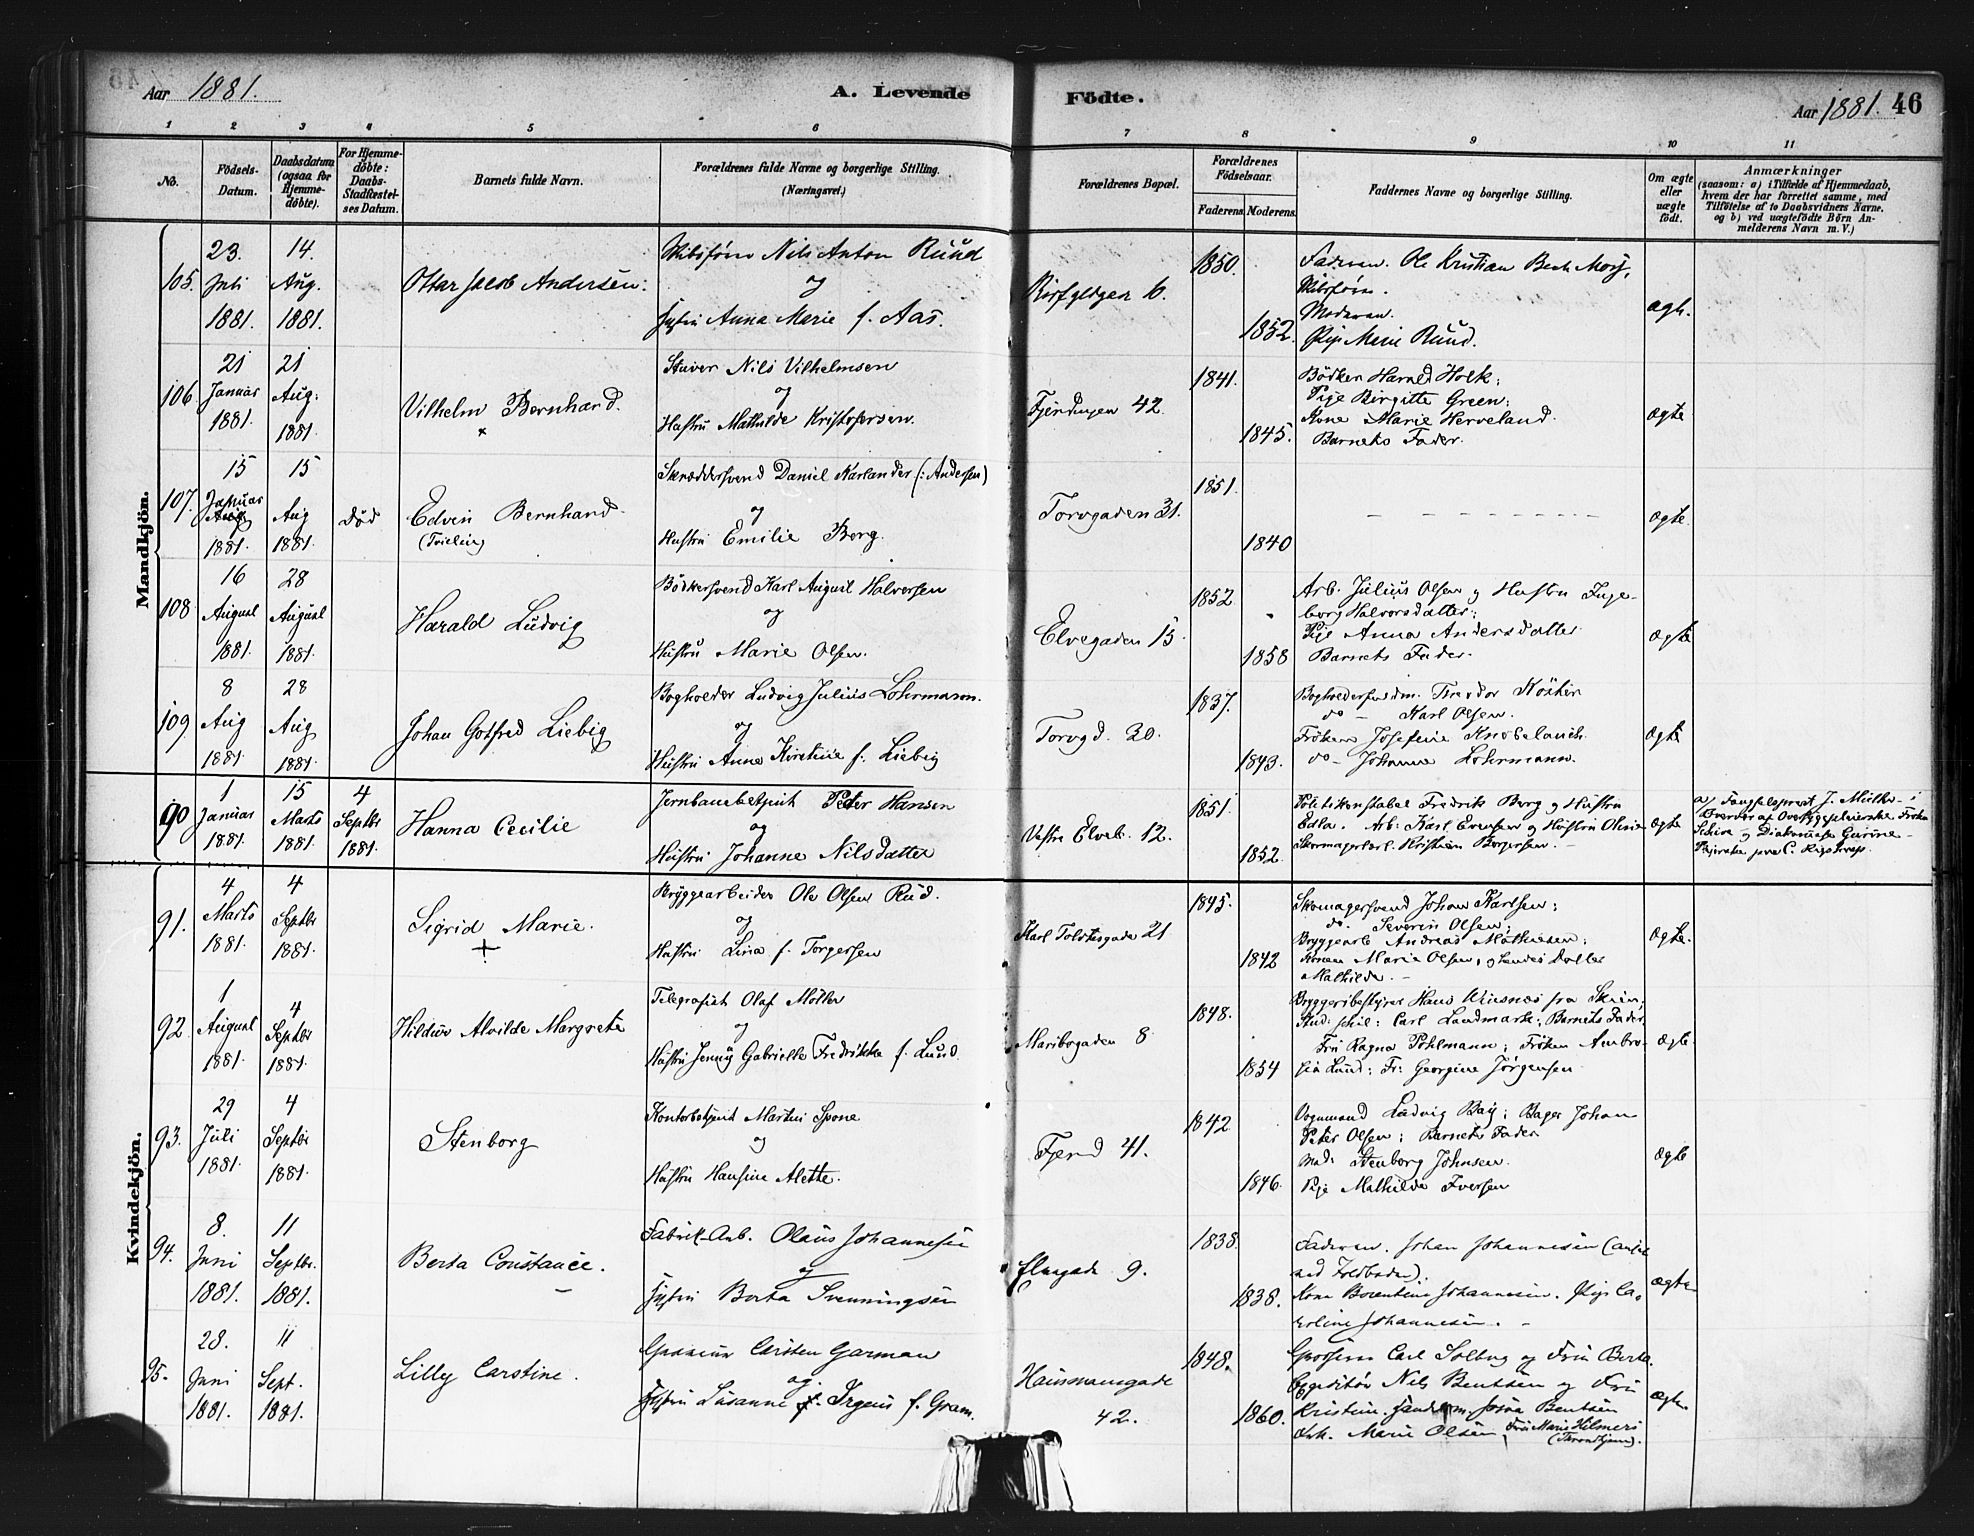 Aar 1881.
A. Levende Födte.
Aar 1881. 46
1 2 3 4 5 6 7 8 9 10 11
No.
Födsels-Datum.
Daabsdatum (ogsaa for Hjemmedöbte).
For Hjemmedöbte: Daabs-Stadfæstelses Datum.
Barnets fulde Navn.
Forældrenes fulde Navne og borgerlige Stilling.
(Næringsvei.)
Forældrenes Bopæl.
Forældrenes Födselsaar.
Faderens. Moderens.
Faddernes Navne og borgerlige Stilling.
Om ægte eller uægte födt.
Anmærkninger
(saasom: a) i Tilfælde af Hjemmedaab,
hvem der har forrettet samme, med
Tilföielse af to Daabsvidners Navne,
og b) ved uægtefödte Börn Anmelderens Navn m. V.)
Mandkjön.
105. 23. Juli 1881. 14. Aug. 1881.
Ottar Jacob Andersen.
Nils Anton Ruud
og
Anna Marie f. Aas.
6.
1850. 1852.
Ole Kristian Berth
Marie Ruud.
ægte.
106. 21 Januar 1881. 21 Aug. 1881.
Vilhelm Bernhard.
Stuver Nils Vilhelmsen
og
Hustru Mathilde Kristofersen.
Fjerdingen 42.
1841. 1845.
Bödker Harald Holk;
Pige Birgitte Green;
Kone Marie Herveland.
Barnets Fader.
ægte
107. 15 Januar 1881. 15 Aug 1881. Död
Edvin Bernhard
Skræddersvend Daniel Karlander (: Andersen)
og
Hustru Emilie Borg.
Torvgaden 31.
1851. 1840
ægte.
108 16 August 1881. 28 August 1881.
Harald Ludvig
Bödkersvend Karl August Halvorsen
og
Hustru Marie Olsen.
Elvegaden 15
1852 1858
Arb. Julius Olsen og Hustru Inge-
borg Halvorsdatter;
Pige Anna Andersdatter
Barnets Fader.
ægte
109. 8 Aug 1881. 28 Aug 1881.
Johan Gotfred Liebig
Bogholder Ludvig Julius Lohrmann.
og
Hustru Anna Kirstine f. Liebig
Torvgd. 30.
1837. 1843.
Theodor Köster
do - Karl Olsen.
Fröken Josefine Knobelauch.
do - Johanne Lohrmann.
ægte
Kvindekjön.
90 1 Januar 1881. 15 Marts 1881. 4 Septbr 1881.
Hanna Cecilie
Jernbanebetjent Peter Hansen
og
Hustru Johanne Nilsdatter
12.
1851. 1852.
Politikonstabel Fredrik Berg og Hustru
Edla. Arb: Karl Evensen og Hustru Oline
Kristian Borgersen.
ægte
91. 4 Marts 1881. 4 Septbr 1881.
Sigrid Marie.
Bryggearbeider Ole Olsen Rud.
og
Hustru Lina f. Torgersen
21
1845. 1842
Skomagersvend Johan Karlsen;
do. Severin Olsen;
Bryggearb Andreas Mathiesen;
Konen Marie Olsen, og hendes Datter
Mathilde. -
ægte.
92. 1 August 1881. 4 Septbr 1881.
Hildur Alvilde Margrete
Telegrafist Olaf Möller
og
Hustru Jenny Gabrielle Fredrikke f. Lund.
Maribogaden 8
1848. 1854
Bryggeribestyrer Hans fra Skien;
Stud: phil: Carl Landmark; Barnets Fader.
Fru Ragna Pohlmann; Fröken Ambro-
sia Lund; Fr: Georgine Jörgensen
ægte.
93. 29 Juli 1881. 4 Septbr 1881.
Stenborg
Kontorbetjent Martin Spone
og
Hustru Hansine Alette.
Fjerd 41.
1842 1846.
Vognmand Ludvig Bay; Bager Johan
Peter Olsen; Barnets Fader
Mad: Stenborg Johnsen.
Pige Mathilde Iversen
ægte
94. 8. Juni 1881. 11 Septbr. 1881.
Berta Constance.
Fabrik-Arb. Olaus Johannesen
og
Berta Svenningsen
9.
1838. 1838.
Faderen. Johan Johannesen
Kone Johannesen. Pige Ca-
roline Johannesen. -
ægte
95. 28. Juni 1881. 11 Sept. 1881.
Lilly Carstine.
Carsten Garman
og
Susanne Irgens f. Gram.
Hausmannsgade
42.
1848. 1860.
Grosserer Carl Solberg og Fru Berta.
Expeditör Nils Bentsen og Fru
Kristine. Bentsen
Frk. Marie Olsen, Fru Marie Hilmers
(Throndhjem).
ægte.